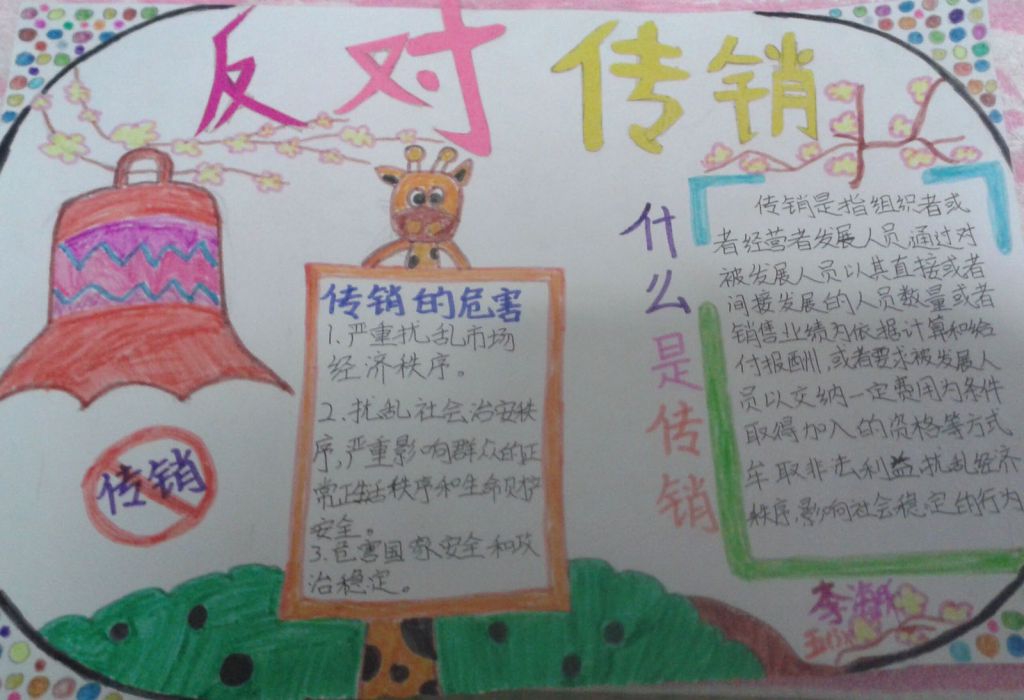 反对传销
传销的危害
1.严重扰乱市场
经济秩序。
2.扰乱社会治安秩
序,严重影响群众的正
常正生活秩序和生命财护
安全。
3.危害国家安全和政
治稳定。
传销
什么是传销
传销是指组织者或
者经营者发展人员,通过对
被发展人员以其直接或者
间接发展的人员数量或者
销售业绩为依据计算和给
付报酬,或者要求被发展人
员以交纳一定费用为条件
取得加入的资格等方式
牟取非法利益,扰乱经济
秩序,影响社会稳定的行为
李海